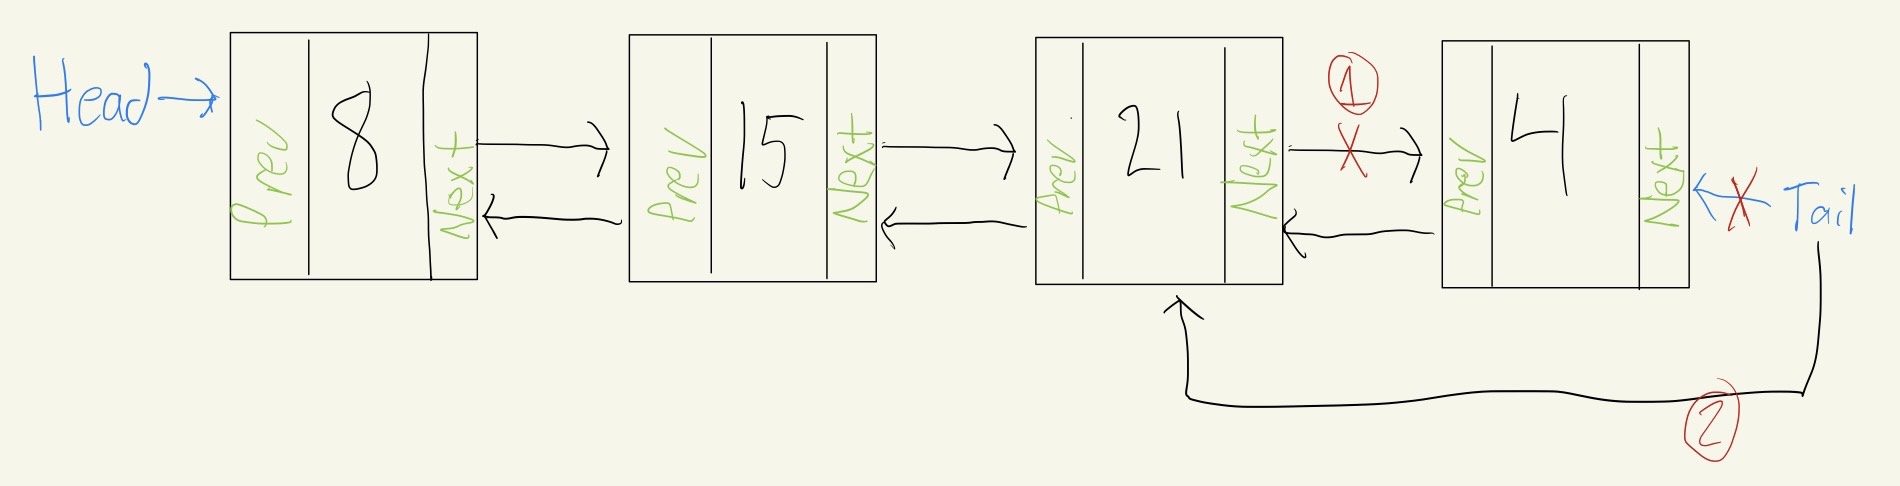 Head
Prev
8
Next
Prev
15
Next
Prev
21
Next
1
X
Prev
4
Next
X
Tail
2